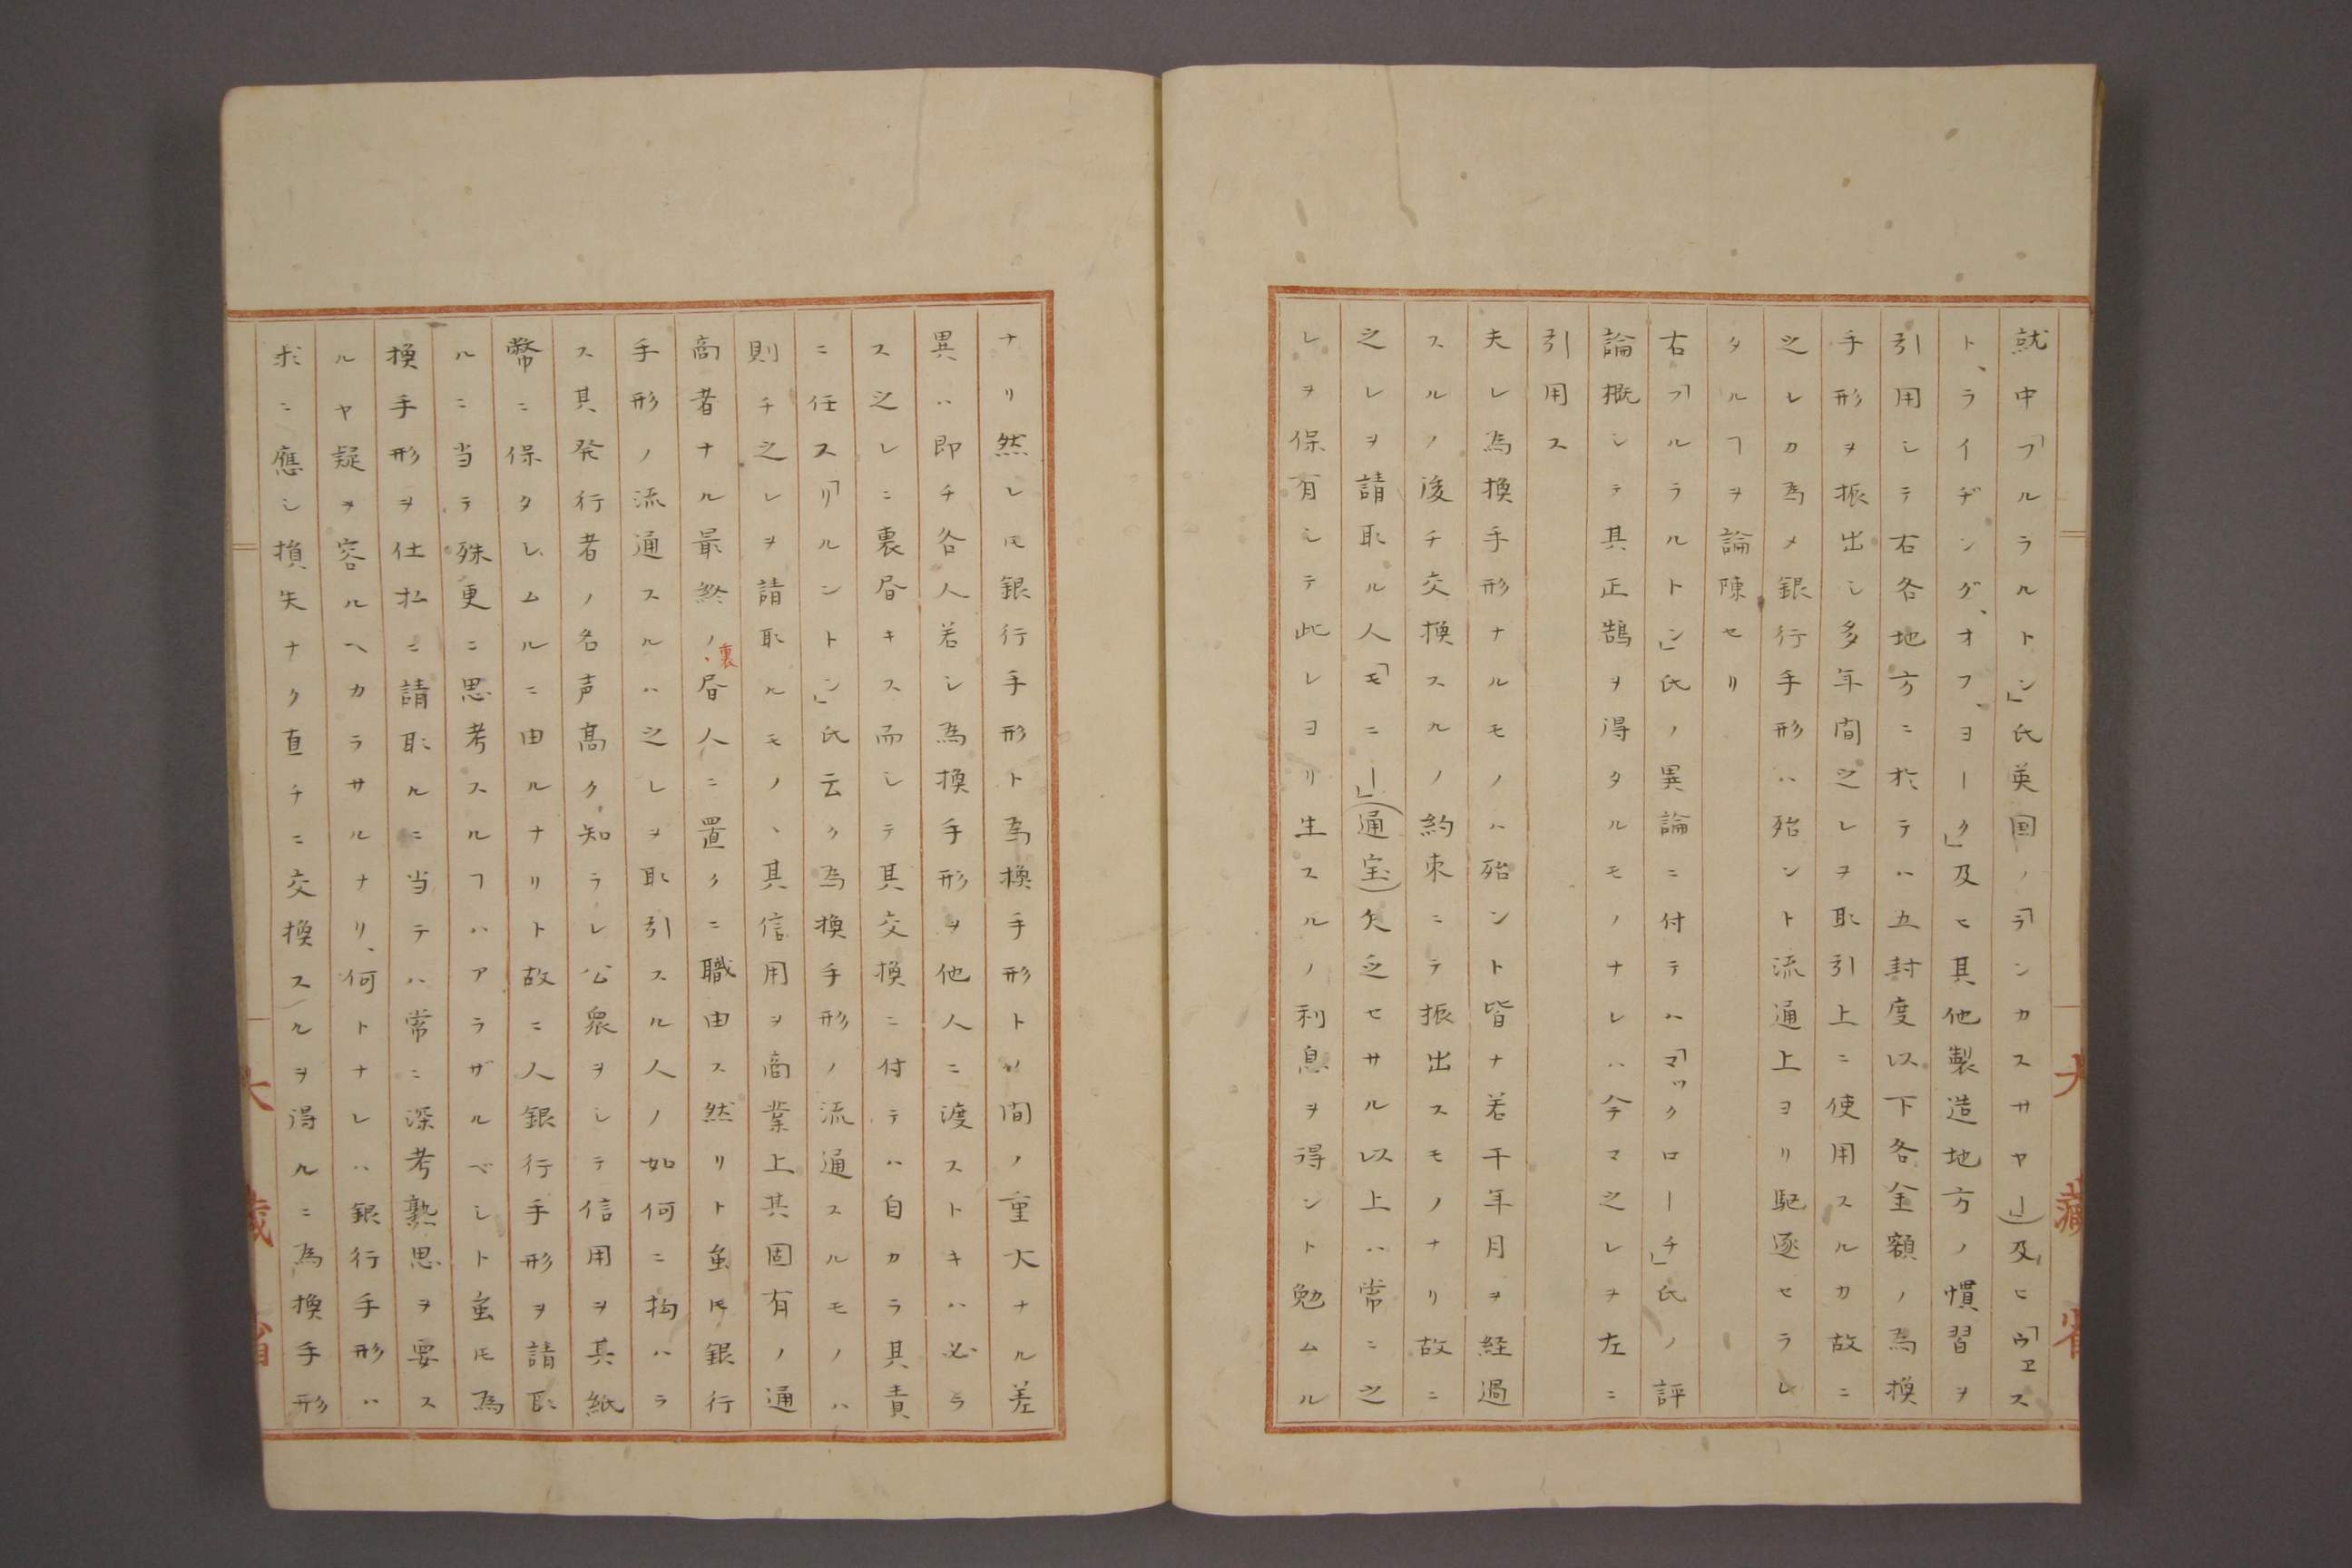 就中「フルラルトン」氏英国ノ「ランカスサヤ」(及)ヒ「ウヱス
ト、ライヂング、オフ、ヨーク」及ヒ其他製造地方ノ慣習ヲ
引用シテ右各地方ニ於テハ五封度以下各金額ノ為換
手形ヲ振出シ多年間之レヲ取引上ニ使用スルカ故ニ
之レカ為メ銀行手形ハ殆ント流通上ヨリ駆逐セラレ
タルヿヲ論陳セリ
右「フルラルトン」氏ノ異論ニ付テハ「マックローチ」氏ノ評
論概シテ其正鵠ヲ得タルモノナレハ今マ之レヲ左ニ
引用ス
夫レ為換手形ナルモノハ殆ント皆ナ若干年月ヲ経過
スルノ後チ交換スルノ約束ニテ振出スモノナリ故ニ
之レヲ請取ル人「モニー」(通宝)欠乏セサル以上ハ常ニ之
レヲ保有シテ此レヨリ生スルノ利息ヲ得ント勉ムル
ナリ然レ𪜈銀行手形ト為換手形トノ間ノ重大ナル差
異ハ即チ各人若シ為換手形ヲ他人ニ渡ストキハ必ラ
ス之レニ裏書キス而シテ其交換ニ付テハ自カラ其責
ニ任ス「リルントン」氏云ク為換手形ノ流通スルモノハ
則チ之レヲ請取ルモノヽ其信用ヲ商業上其固有ノ通
商者ナル最終ノ裏書人ニ置クニ職由ス然リト虽𪜈銀行
手形ノ流通スルハ之レヲ取引スル人ノ如何ニ拘ハラ
ス其発行者ノ名声高ク知ラレ公衆ヲシテ信用ヲ其紙
幣ニ保タシムルニ由ルナリト故ニ人銀行手形ヲ請取
ルニ当テ殊更ニ思考スルヿハアラザルベシト虽𪜈為
換手形ヲ仕払ニ請取ルニ当テハ常ニ深考熟思ヲ要ス
ルヤ疑ヲ容ルヘカラサルナリ、何トナレハ銀行手形ハ
求ニ應シ損失ナク直チニ交換スルヲ得ルニ為換手形
大藏省
大藏省